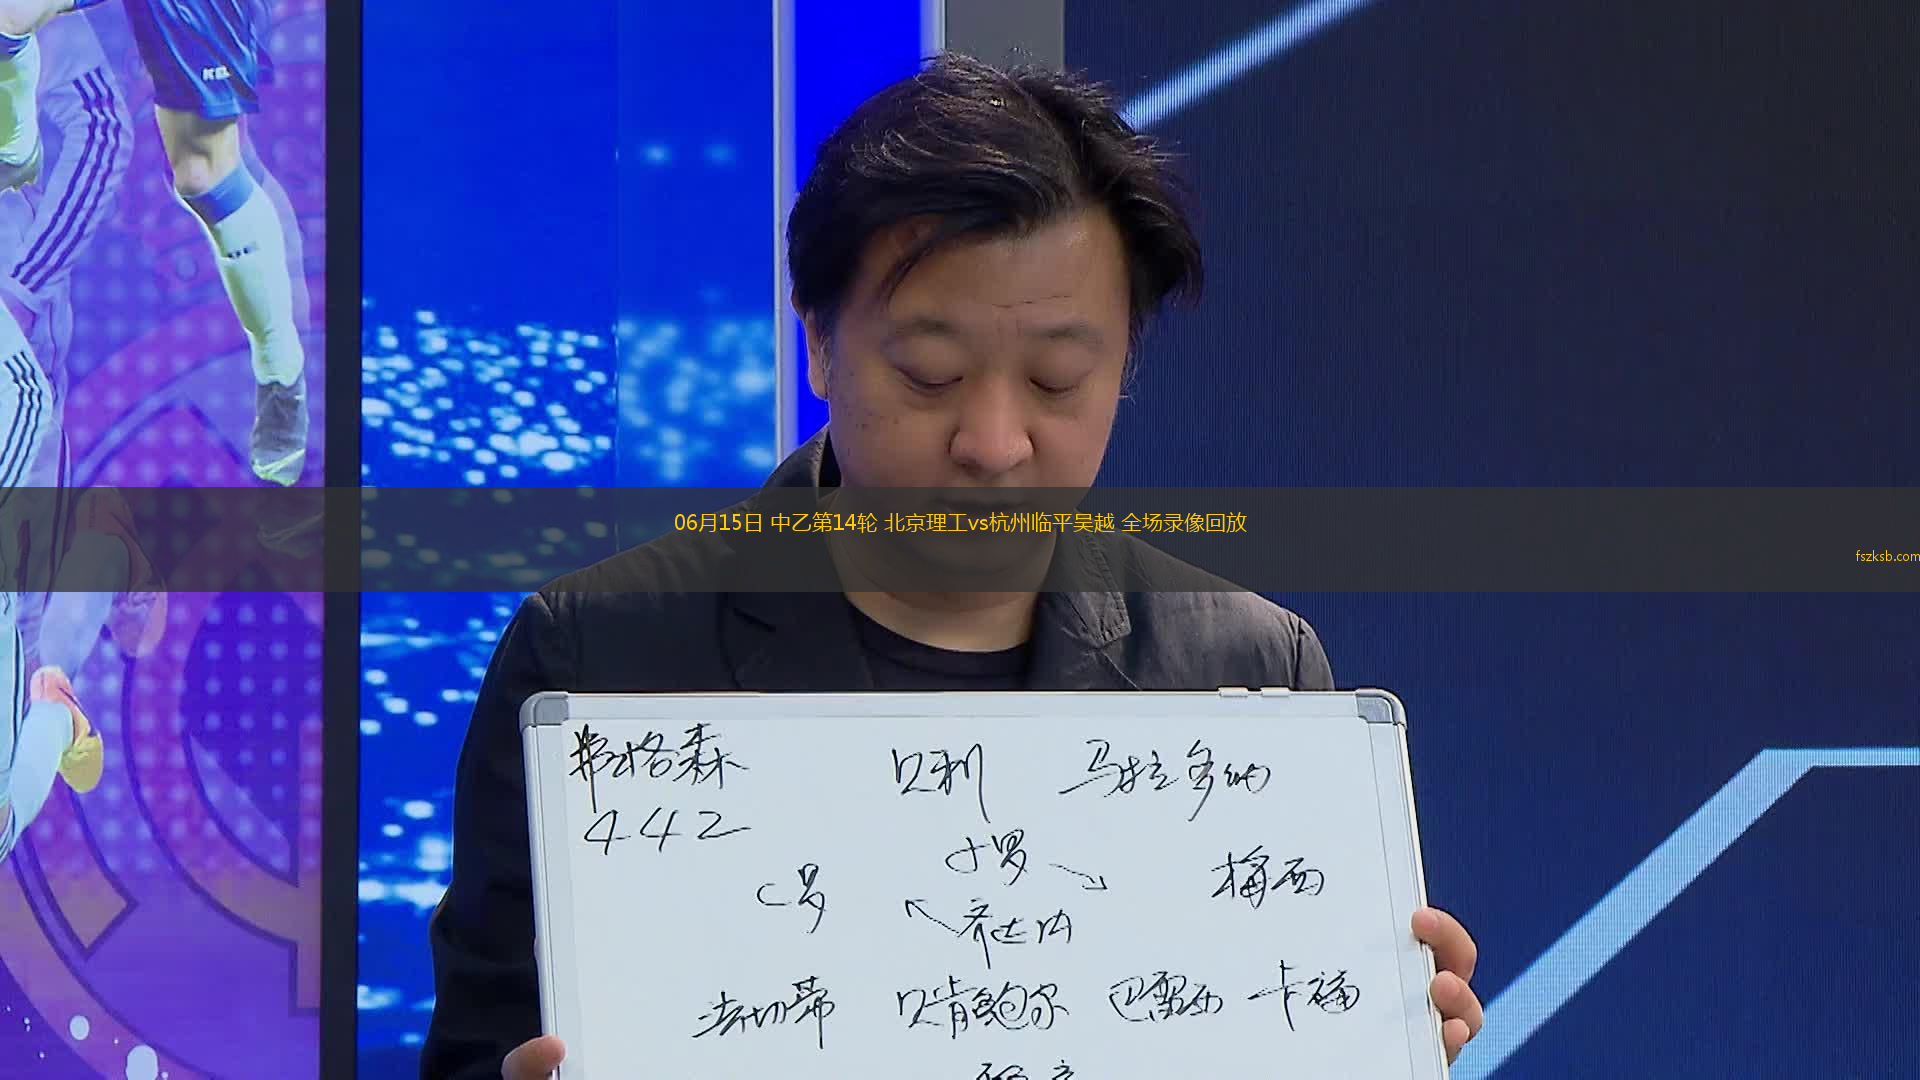 KEL
06月15日 中乙第14轮 北京理工vs杭州临平吴越 全场录像回放
fszksb.com
弗格森 贝利 马拉多纳
442
小罗
C罗 梅西
齐达内
法切蒂 贝肯鲍尔 巴雷西 卡福